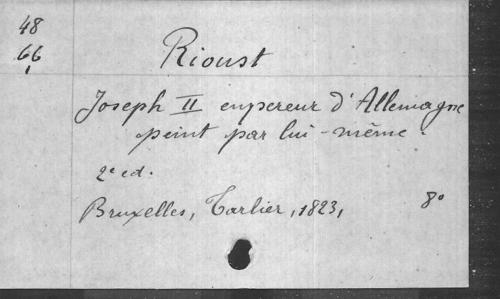 48
66
Rioust
Joseph II enpereur d'Allemagne
peint par lui-même.
2e ed.
Bruxelles, Tarlier, 1823,
8°